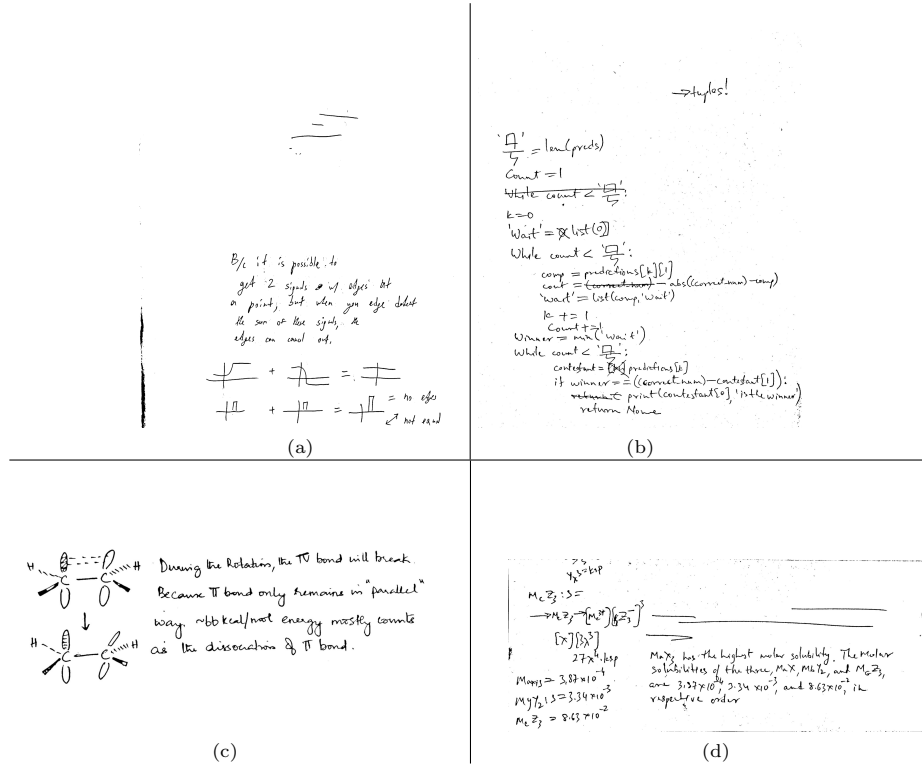 B/c it is possible to
get 2 signals w/ edges at
a point, but when you edge detect
the sum of those signals, the
edges can cancel out.
+ =
+ = = no edges
not equal
(a)
→tuples!
= len(preds)
Count = 1
While count <
k=0
'Wait' = list(0)
While count < :
comp = predictions[k][1]
cout = (correct.num) - abs((correct.num)-comp)
'wait' = list(comp,'wait')
k += 1
Count +=1
Winner = min('wait')
While count < :
contestant = predictions[k]
if winner == ((correct.num)-contestant[1]):
print(contestant[0],'is the winner')
return None
(b)
H C C H
H C C H
During the Rotation, the π bond will break.
Because π bond only remains in "parallel"
way. ~66 kcal/mol energy mostly counts
as the dissociation of π bond.
(c)
=ksp
McZ3 : S=
[x][3x³]
27x⁴=ksp
= 3.87x10⁻⁴
MyY2 : S = 3.34x10⁻³
McZ3 = 8.63x10⁻²
MaX3 has the highest molar solubility. The Molar
solubilities of the three, MaX, MbY2, and McZ3,
are 3.87x10⁻⁴, 3.34 x10⁻³, and 8.63x10⁻², in
respective order
(d)